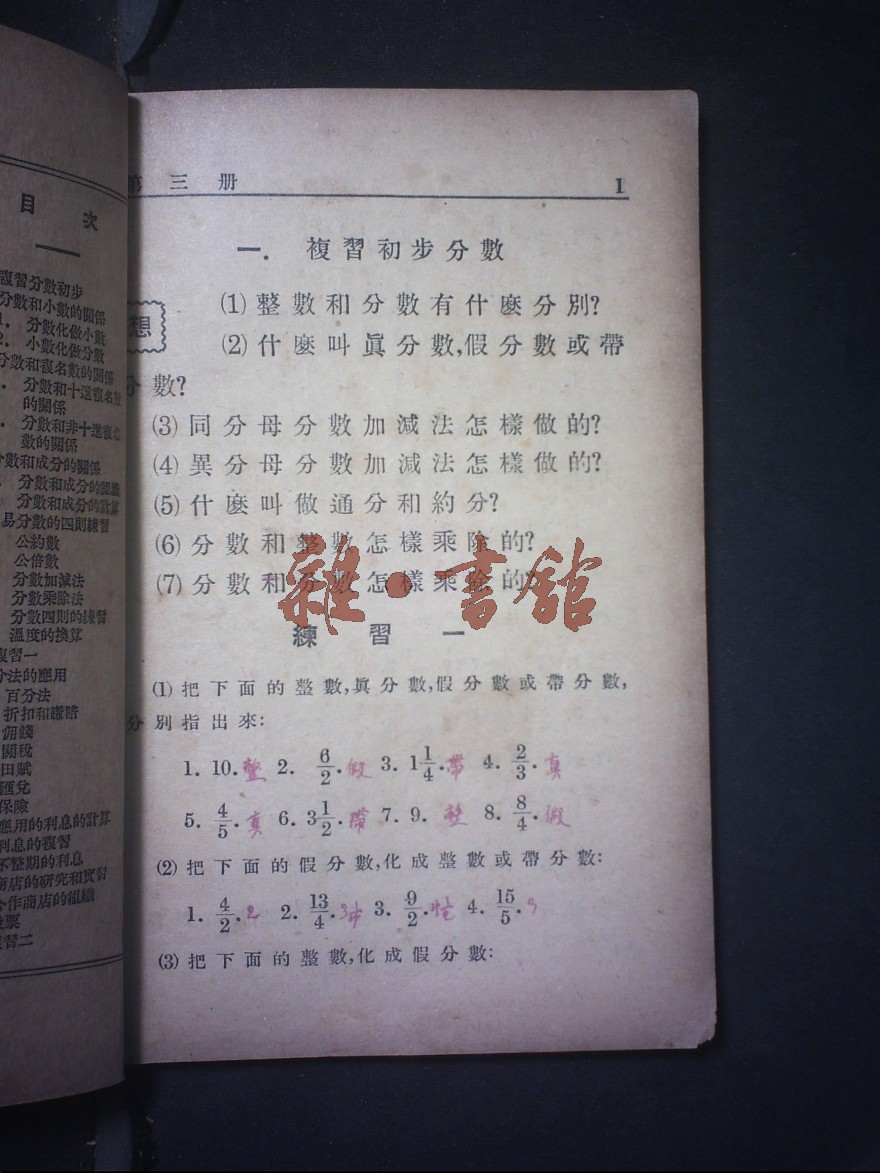 目 次
複習分數初步
分數和小數的關係
1. 分數化做小數
2. 小數化做分數
分數和複名數的關係
分數和十進複名數
的關係
分數和非十進複名
數的關係
分數和成分的關係
分數和成分的關係
分數和成分的計算
易分數的四則練習
公約數
公倍數
分數加減法
分數乘除法
分數四則的練習
溫度的換算
複習一
分法的應用
百分法
折扣和賺賠
佣錢
關稅
田賦
匯兌
保險
應用的利息的計算
利息的複習
不整期的利息
商店的研究和實習
合作商店的組織
股票
複習二
第三册 1
一. 複習初步分數
想
(1) 整數和分數有什麽分別?
(2) 什麽叫眞分數,假分數或帶
分數?
(3) 同分母分數加減法怎樣做的?
(4) 異分母分數加減法怎樣做的?
(5) 什麽叫做通分和約分?
(6) 分數和整數怎樣乘除的?
(7) 分數和分數怎樣乘除的?
雜·書館
練習一
(1) 把下面的整數,眞分數,假分數或帶分數,
分別指出來:
1. 10. 整 2. 6/2. 假 3. 1 1/4. 帶 4. 2/3. 真
5. 4/5. 真 6. 3 1/2. 帶 7. 9. 整 8. 8/4. 假
(2) 把下面的假分數,化成整數或帶分數:
1. 4/2. 2 2. 13/4. 3. 9/2. 4. 15/5.
(3) 把下面的整數,化成假分數: